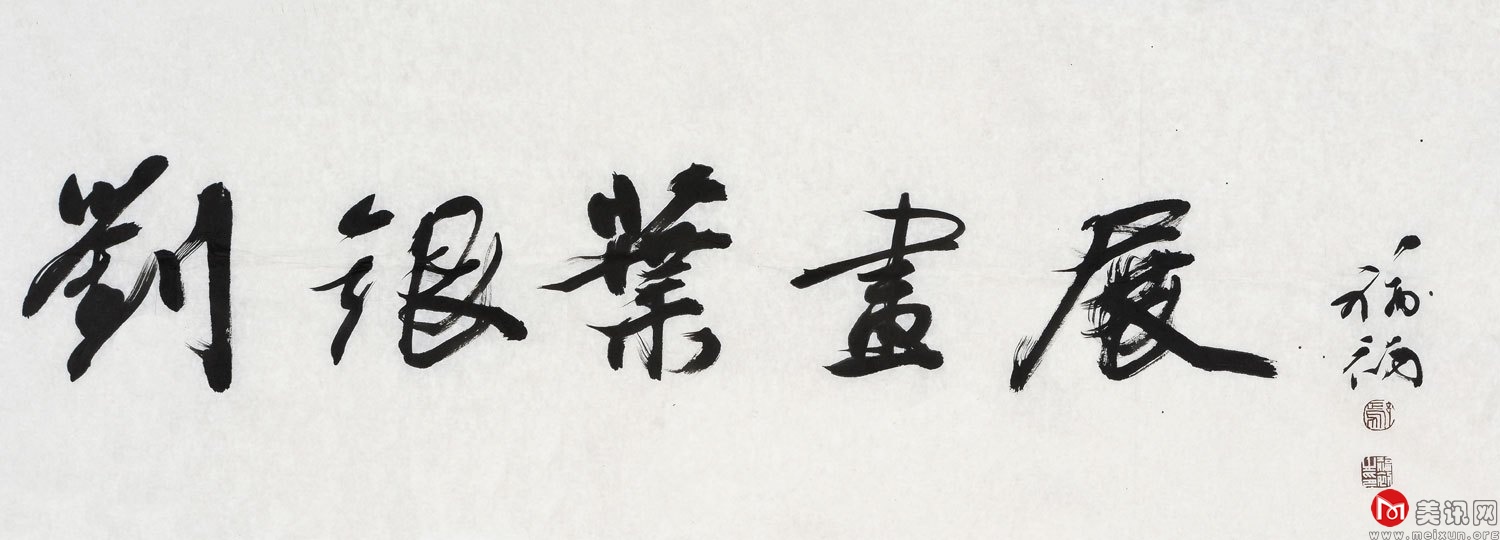 劉銀葉畫展
美讯网
www.meixun.org